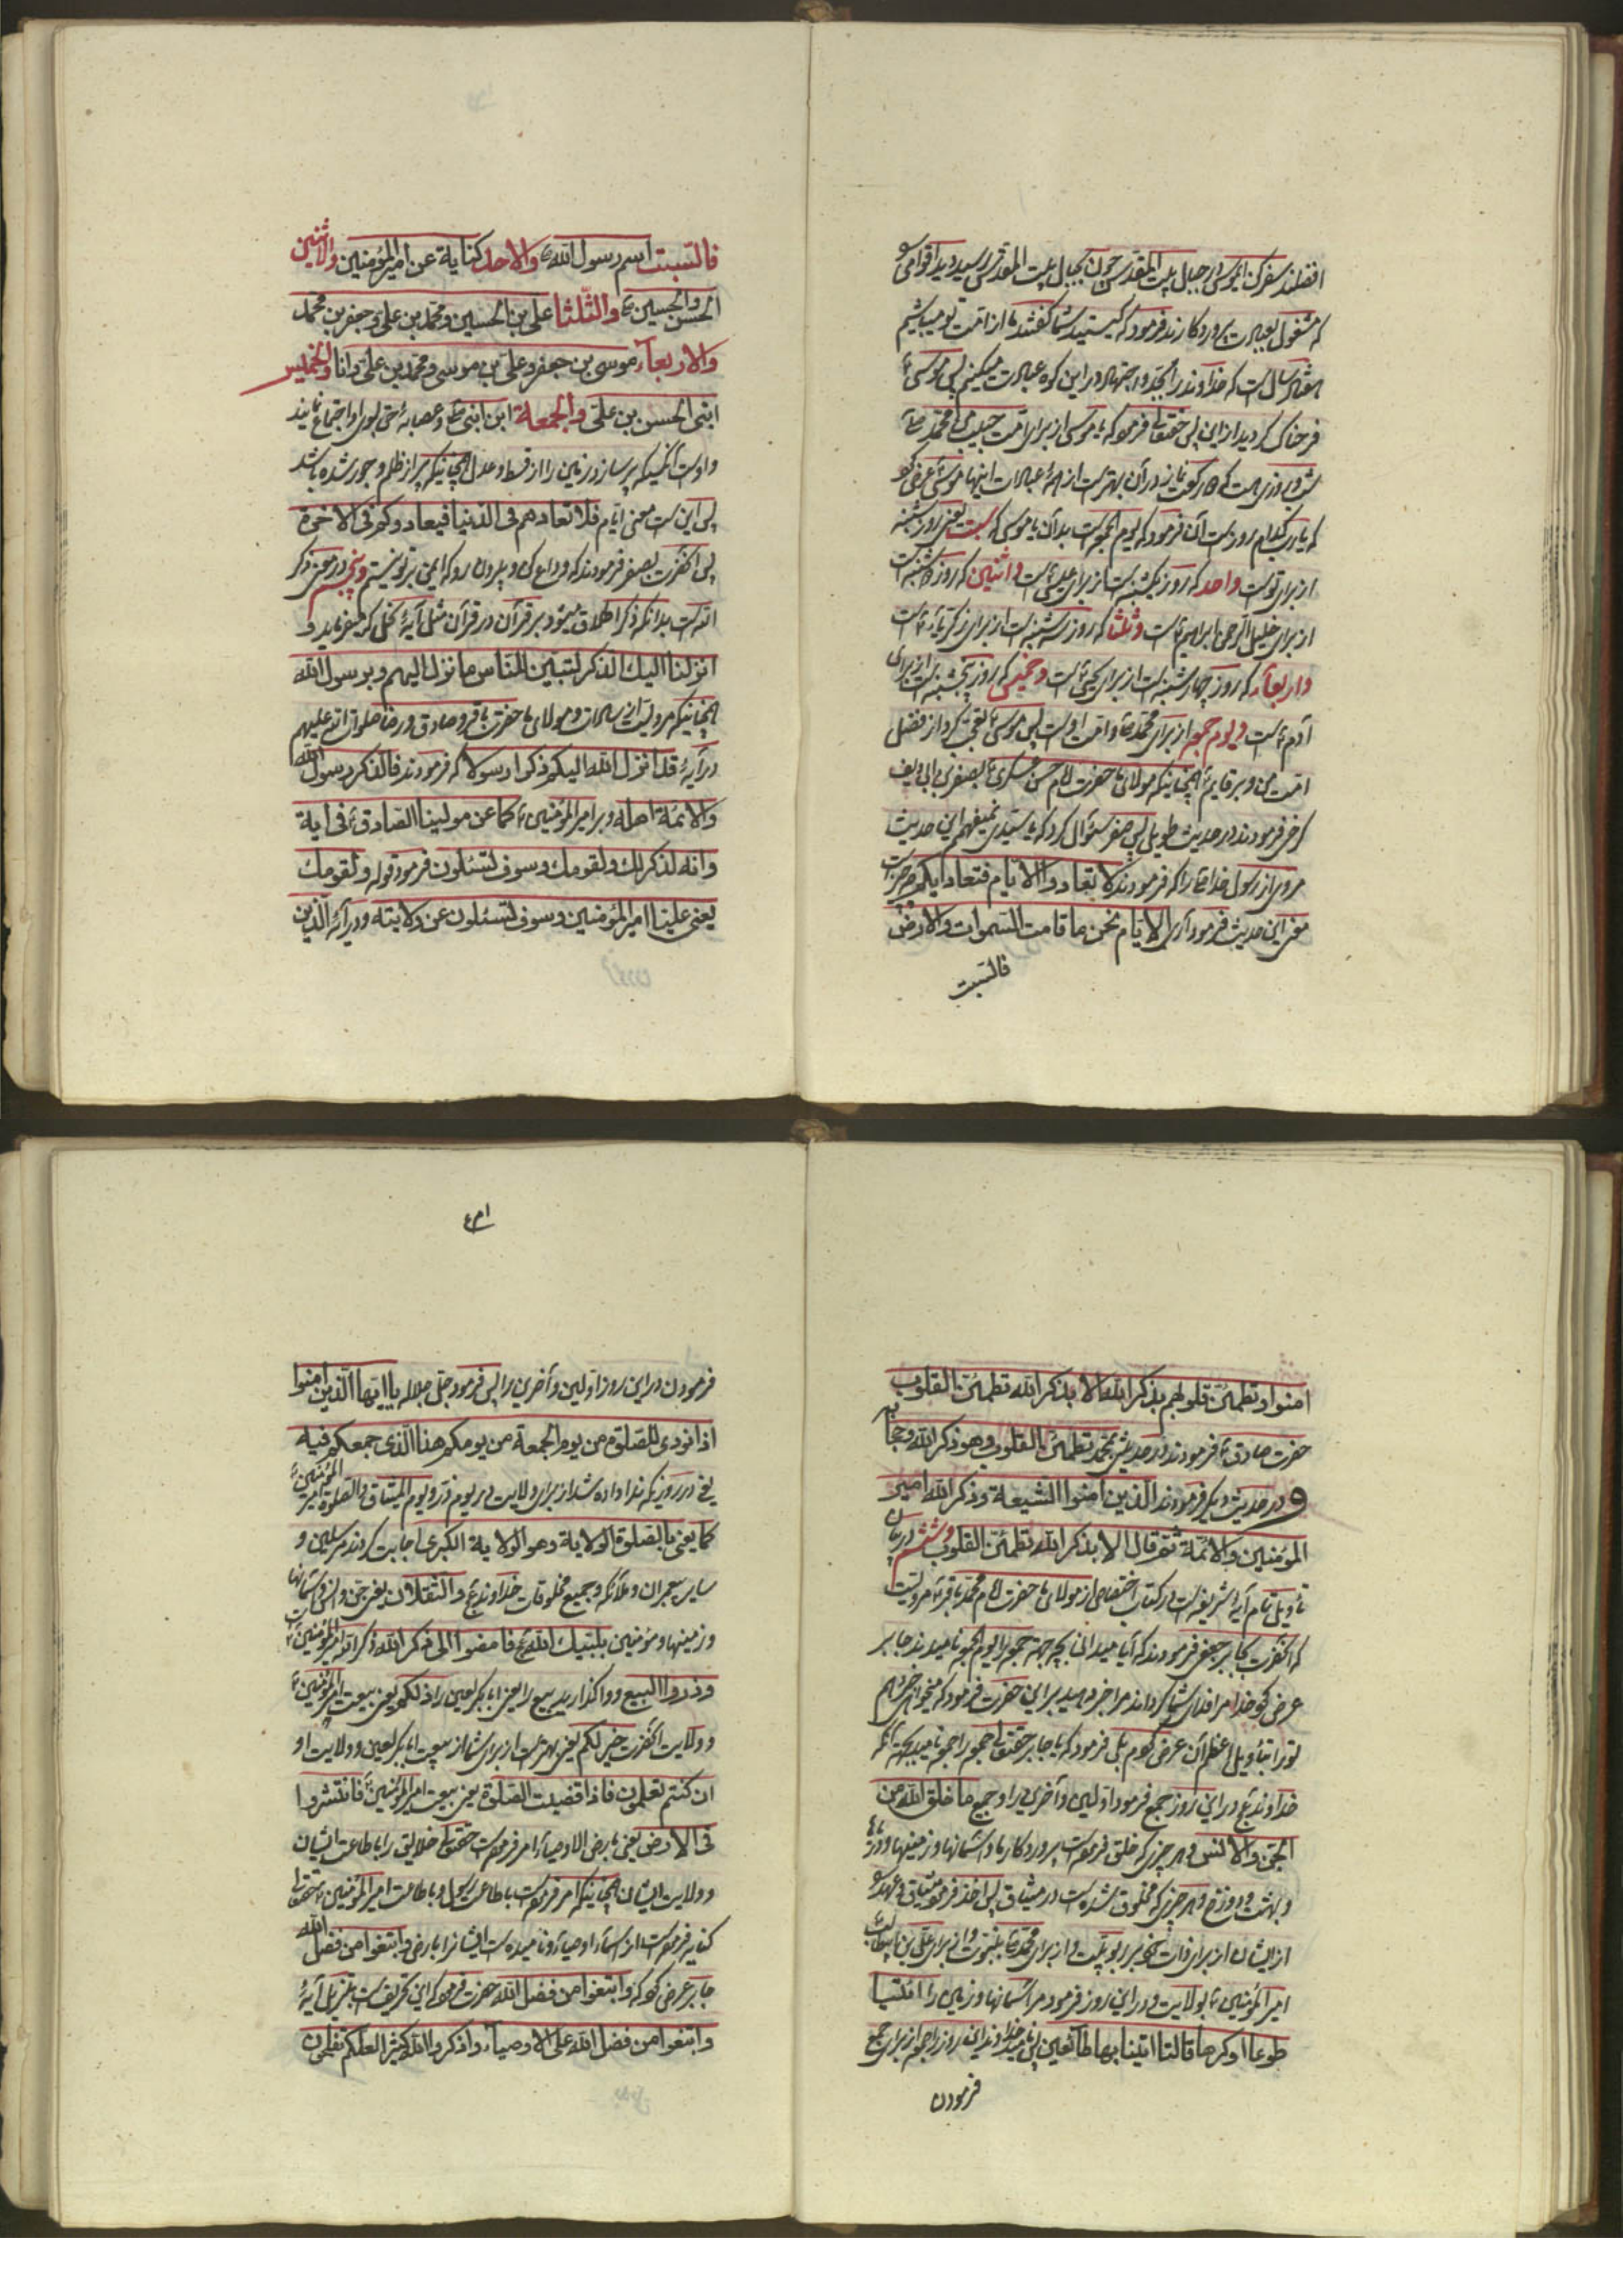 افضلند سفر کن ایموسی از جبل بیت المقدس چون بجبل بیت المقدس رسید دید اقوامی
که مشغول بعبادت پروردکارند فرمود که کیستید شما کفتند ما از امت تو میباشیم
سال است که خداوند را بجد و اجتهاد در این کوه عبادت میکنیم پس موسی ع
فرحناک کردید از این پس حقتعالی فرمود که یا موسی از برای امت حبیب من محمد ص
روزی است که دو رکعت نماز در آن بهتر است از همهٔ عبادات اینها موسی ع عرض کرد
که یا رب کدام روز است آن فرمود که یوم الجمعه است بدان یا موسی که سبت یعنی روز شنبه
از برای تو است واحد که روز یکشنبه است از برای عیسی است واثنین که روز دوشنبه است
از برای خلیل الرحمن ابراهیم ع است وثلثا که روز سه شنبه است از برای زکریا ع است
واربعاء که روز چهار شنبه است از برای یحیی ع است وخمیس که روز پنجشنبه است از برای
آدم ع است ویوم جمعه از برای محمد ص و امت او است پس موسی ع تعجب کرد از فضل
امت من و بر قایم همچنانیکه مولای ما حضرت امام حسن عسکری ع بصقر بن ابی دلف
کرخی فرمودند در حدیث طویلی پس صقر سئوال کرد که یا سیدی نمیفهمم این حدیث
مروی از رسول خدا ص را که فرمودند لا تعادوا الایام فتعادیکم حضرت
معنی این حدیث فرمود آری الایام نحن ما قامت السموات والارض
فالسبت
فالسبت اسم رسول الله ص والاحد کنایة عن امیر المؤمنین والاثنین
الحسن والحسین ع والثلثا علی بن الحسین ومحمد بن علی وجعفر بن محمد
والاربعآء موسی بن جعفر وعلی بن موسی ومحمد بن علی وانا والخمیس
ابنی الحسن بن علی والجمعة ابن ابنی وعصابهٔ حق بسوی او اجتماع نمایند
و او است آنکسیکه پر سازد زمین را از قسط و عدل همچنانیکه پر از ظلم و جور شده باشد
پس این است معنی ایام فلا تعادهم فی الدنیا فیعادوکم فی الاخرة
پس آنحضرت بصقر فرمودند که وداع کن و بیرون رو که ایمن بر تو نیستم وپنجم در معنی ذکر
الله است بدانکه ذکر اطلاق میشود بر قرآن در قرآن مثل آیهٔ نحل که میفرماید و
انزلنا الیك الذکر لتبین للناس ما نزل الیهم وبرسول الله
همچنانیکه مرویست از سادات و مولای ما حضرت باقر و صادق ورضا صلوات الله علیهم
در آیهٔ قد انزل الله الیکم ذکرا رسولا که فرمودند فالذکر رسول الله
والائمة اهله وبر امیر المؤمنین ع کما عن مولینا الصادق ع فی ایة
وانه لذکر لك ولقومك وسوف تسئلون فرمود قوله ولقومك
یعنی علیا امیر المؤمنین وسوف تسئلون عن ولایته ودر آیهٔ الذین
امنوا وتطمئن قلوبهم بذکر الله الا بذکر الله تطمئن القلوب
حضرت صادق ع فرمودند در حدیثی بمحمد تطمئن القلوب وهو ذکر الله وحجابه
و در حدیث دیکر فرمودند الذین امنوا الشیعة وذکر الله امیر
المؤمنین والائمة ثم قال الا بذکر الله تطمئن القلوب وششم در بیان
تأویل تمام آیهٔ شریفه است در کتاب اختصاص از مولای ما حضرت امام محمد باقر ع مرویست
که آنحضرت بجابر جعفی فرمودند که آیا میدانی بچه جهة جمعه را یوم الجمعه نامیدند جابر
عرض کرد خدا مرا فدای شما کرداند مرا خبر دهید بر این حضرت فرمود که میخواهی خبر دهم
تو را بتأویل اعظم آن عرض کردم بلی فرمود که یا جابر حقتعالی جمعه را جمعه نامید بجهة آنکه
خداوند تع در این روز جمع فرمود اولین وآخرین را وجمیع ما خلق الله من
الجن والانس و هر چیزی که خلق فرموده است پروردکار ما و آسمانها و زمینها و دریاها
و بهشت و دوزخ و هر چیزی که مخلوق شده است در میثاق پس اخذ فرمود میثاق وعهد
از ایشان از برای ذات خود بربوبیت واز برای محمد ص بنبوت واز برای علی بن ابیطالب
امیر المؤمنین ع بولایت ودر این روز فرمود مر آسمانها وزمین را ائتیا
طوعا او کرها قالتا اتینا بها طآئعین پس نامید خداوند این روز را جمعه از برای جمع
فرمودن
ا۴۱
فرمودن در این روز اولین و آخرین را پس فرمود جل جلاله یا ایها الذین امنوا
اذا نودی للصلوة من یوم الجمعة من یومکم هذا الذی جمعکم فیه
یعنی در روزیکه ندا داده شد از برای ولایت در یوم ذر ویوم المیثاق والصلوة امیر المؤمنین
کما یعنی بالصلوة الولایة وهو الولایة الکبری اجابت کردند مرسلین و
سایر پیغمبران وملآئکه وجمیع مخلوقات خداوند تع والثقلان یعنی جن وانس و آسمانها
و زمینها و مؤمنین بلبیك الله تع فامضوا الی ذکر الله ذکر الله امیر المؤمنین است
وذروا البیع و واکذارید بیع را یعنی ابابکر لعین را ذلکم یعنی بیعت امیر المؤمنین ع
وولایت آنحضرت خیر لکم یعنی بهتر است از برای شما از بیعت ابابکر لعین وولایت او
ان کنتم تعلمون فاذا قضیت الصلوة یعنی بیعت امیر المؤمنین ع فانتشروا
فی الارض یعنی بارض الاوصیآء امر فرموده است حقتعالی خلایق را باطاعت ایشان
وولایت ایشان همچنانیکه امر فرموده است باطاعت رسول و باطاعت امیر المؤمنین ع حقتعالی
کنایه فرموده است از اسمآء اوصیآء ونامیده است ایشانرا بارض وابتغوا من فضل الله
جابر عرض کرد که وابتغوا من فضل الله حضرت فرمود که این تحریف است تنزیل آیهٔ
وابتغوا من فضل الله علی الاوصیآء واذکروا الله کثیرا لعلکم تفلحون